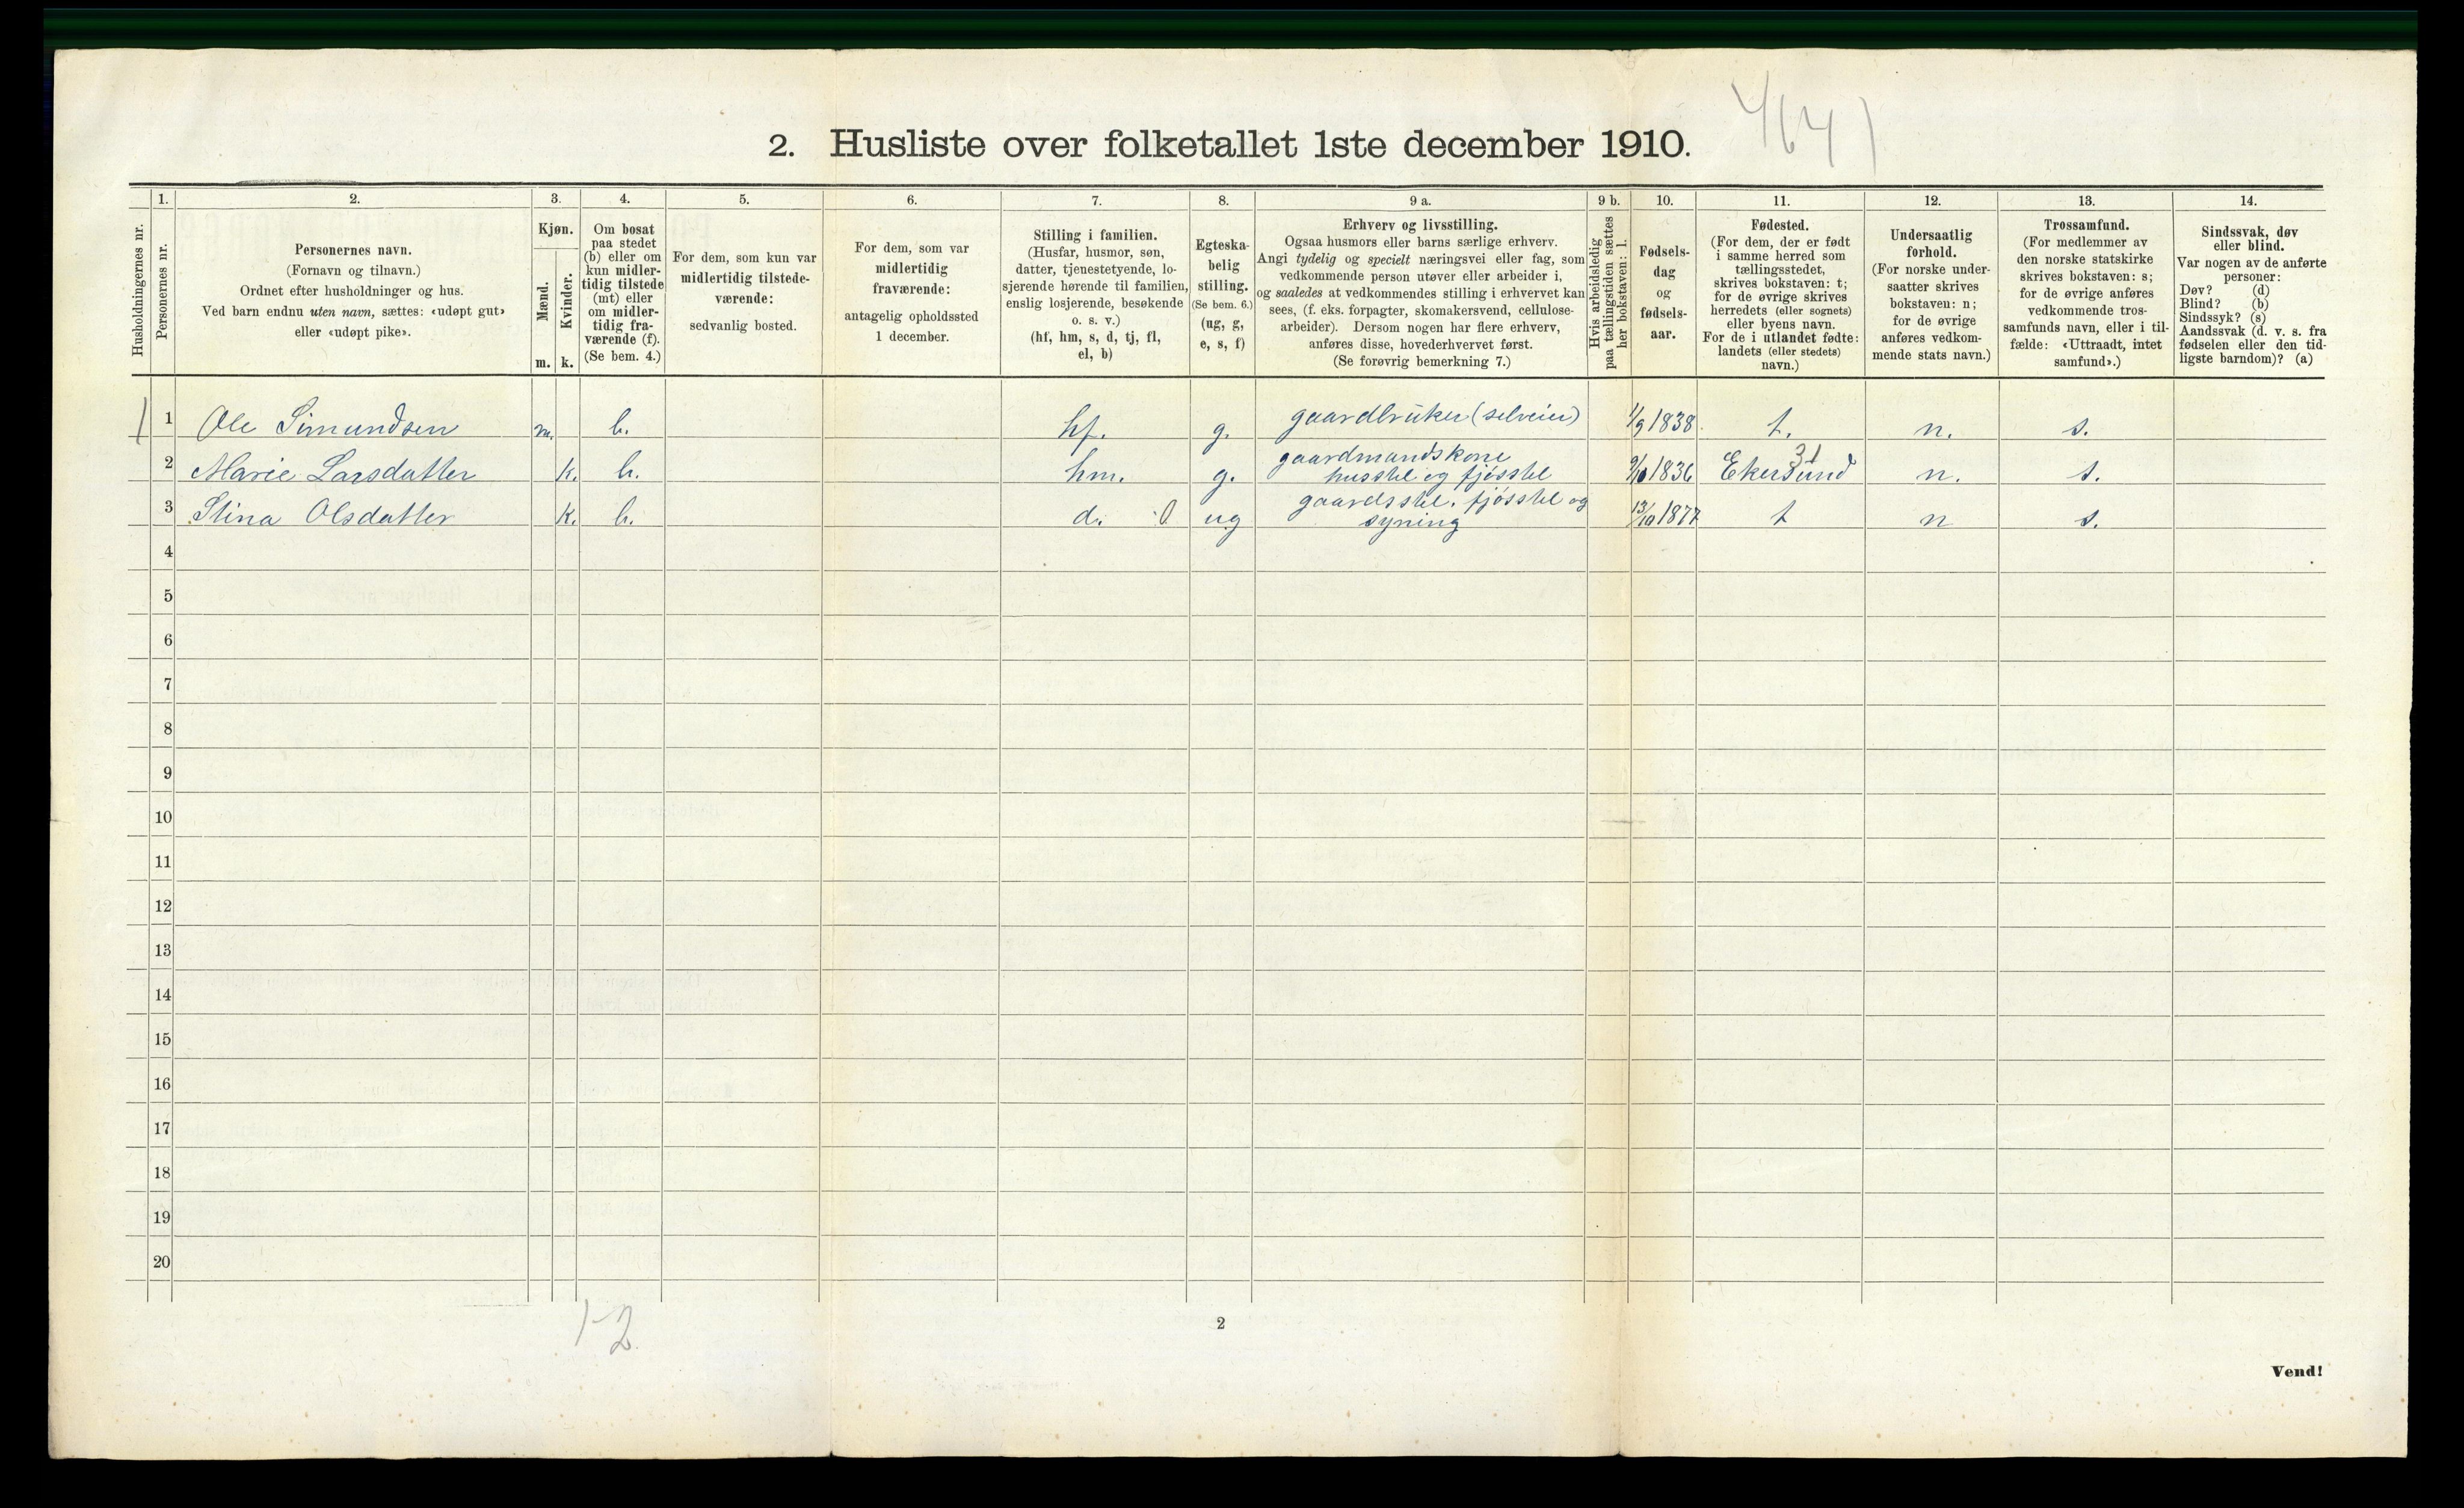 4641
2. Husliste over folketallet 1ste december 1910.
Husholdningernes nr.
1.
Personernes nr.
2.
Personernes navn.
(Fornavn og tilnavn.)
Ordnet efter husholdninger og hus.
Ved barn endnu uten navn, sættes: «udøpt gut»
eller «udøpt pike».
3.
Kjøn.
Mænd.
Kvinder.
m. k.
4.
Om bosat
paa stedet
(b) eller om
kun midler-
tidig tilstede
(mt) eller
om midler-
tidig fra-
værende (f).
(Se bem. 4.)
5.
For dem, som kun var
midlertidig tilstede-
værende:
sedvanlig bosted.
6.
For dem, som var
midlertidig
fraværende:
antagelig opholdssted
1 december.
7.
Stilling i familien.
(Husfar, husmor, søn,
datter, tjenestetyende, lo-
sjerende hørende til familien,
enslig losjerende, besøkende
o. s. v.)
(hf, hm, s, d, tj, fl,
el, b)
8.
Egteska-
belig
stilling.
(Se bem. 6.)
(ug, g,
e, s, f)
9 a.
Erhverv og livsstilling.
Ogsaa husmors eller barns særlige erhverv.
Angi tydelig og specielt næringsvei eller fag, som
vedkommende person utøver eller arbeider i,
og saaledes at vedkommendes stilling i erhvervet kan
sees, (f. eks. forpagter, skomakersvend, cellulose-
arbeider). Dersom nogen har flere erhverv,
anføres disse, hovederhvervet først.
(Se forøvrig bemerkning 7.)
9 b.
Hvis arbeidsledig
paa tællingstiden sættes
her bokstaven: l.
10.
Fødsels-
dag
og
fødsels-
aar.
11.
Fødested.
(For dem, der er født
i samme herred som
tællingsstedet,
skrives bokstaven: t;
for de øvrige skrives
herredets (eller sognets)
eller byens navn.
For de i utlandet fødte:
landets (eller stedets)
navn.)
12.
Undersaatlig
forhold.
(For norske under-
saatter skrives
bokstaven: n;
for de øvrige
anføres vedkom-
mende stats navn.)
13.
Trossamfund.
(For medlemmer av
den norske statskirke
skrives bokstaven: s;
for de øvrige anføres
vedkommende tros-
samfunds navn, eller i til-
fælde: «Uttraadt, intet
samfund».)
14.
Sindssvak, døv
eller blind.
Var nogen av de anførte
personer:
Døv? (d)
Blind? (b)
Sindssyk? (s)
Aandssvak (d. v. s. fra
fødselen eller den tid-
ligste barndom)? (a)
1 1 Ole Simundsen m. b. hf. g. gaardbruker (selveier) 1/9 1838 t. n. s.
2 Marie Larsdatter k. b. hm. g. gaardmandskone
husstel og fjösstel 9/10 1836 31 Ekersund n. s.
3 Stina Olsdatter k. b. d. ug gaardsstel, fjösstel og
syning 13/10 1877 t n s.
4
5
6
7
8
9
10
11
12
13
14
15
16
17
18
19
20
1-2
2
Vend!